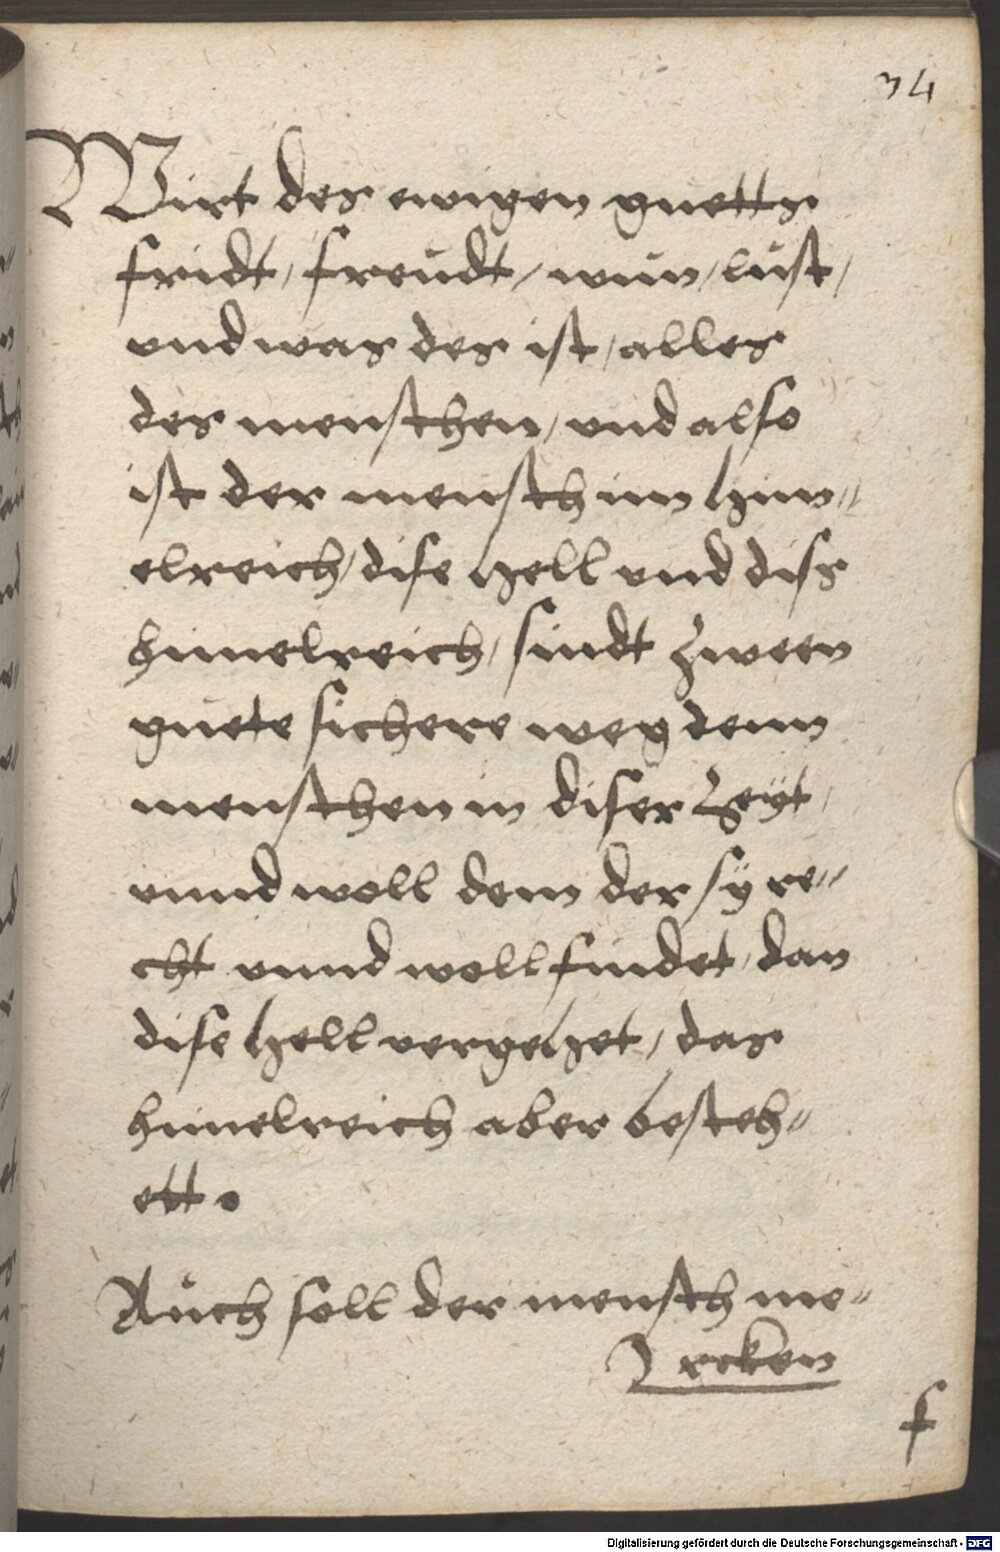 34
Wirt des ewigen guetts
fridt, freudt, wun, lust,
und was des ist, alles
des menschen, und also
ist der mensch im him-
elreich, dise hell und diss
himelreich, sindt zween
guete sichere weg denn
menschen in diser Zeyt,
unnd woll dem der sy re-
cht unnd woll findet, dan
dise hell vergehet, das
himelreich aber besteh-
ett.
Auch soll der mensch me-
rcken
f
Digitalisierung gefördert durch die Deutsche Forschungsgemeinschaft - DFG